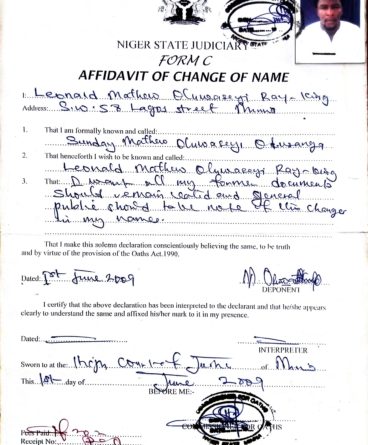 NIGER STATE JUDICIARY
FORM C
AFFIDAVIT OF CHANGE OF NAME
I: Leonald Mathew Oluwaseyi Ray-King
Address: S.W. 58 Lagos street Minna
1. That I am formally known and called:
Sunday Mathew Oluwaseyi
2. That henceforth I wish to be known and called:
Leonald Mathew Oluwaseyi Ray-King
3. That: I want all my former documents
should remain valid and general
public should take note of this change
in my name.
That I make this solemn declaration conscientiously believing the same, to be truth
and by virtue of the provision of the Oaths Act.1990.
Dated: 1st June 2009
DEPONENT
I certify that the above declaration has been interpreted to the declarant and that he/she appears
clearly to understand the same and affixed his/her mark to it in my presence.
Dated:
INTERPRETER
Sworn to at the: High Court of Justice of Minna
This 1st day of June 2009
BEFORE ME:-
COMMISSIONER FOR OATHS
Fees Paid:
Receipt No: